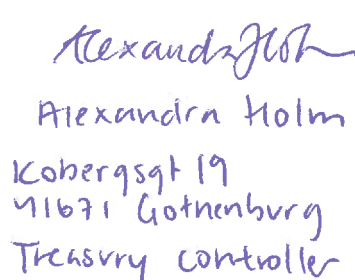 Alexandra Holm
Alexandra Holm
Kobergsgt 19
41671 Gothenburg
Treasury controller